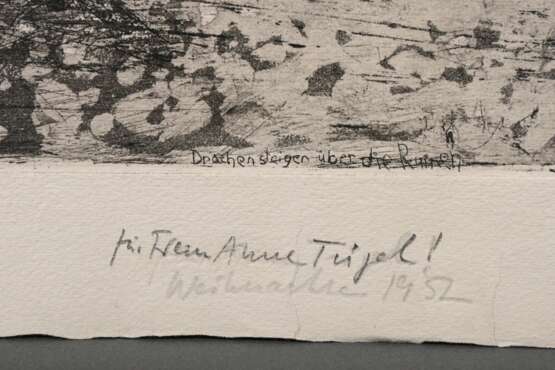 Drachensteigen über die Ruinen
für Frau Anne Tügel!
Weihnachten 1952